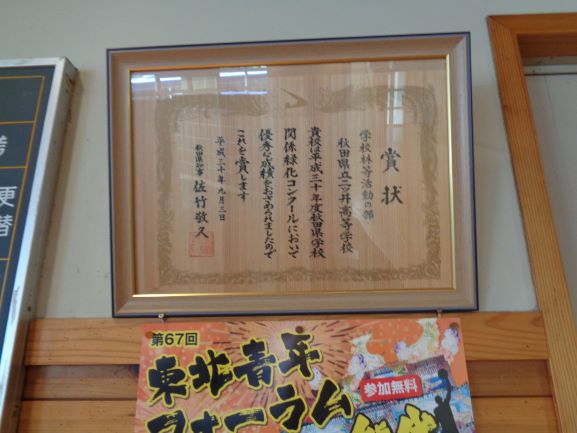 賞状
学校林等活動の部
秋田県立二ツ井高等学校
貴校は平成三十年度秋田県学校
関係緑化コンクールにおいて
優秀な成績をおさめられましたので
これを賞します
平成三十年九月三日
秋田県知事 佐竹敬久
第67回
東北青年
フォーラム
参加無料
更
替